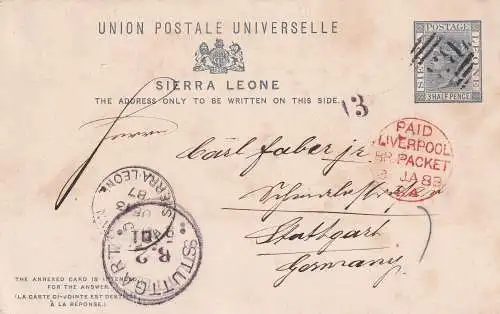 UNION POSTALE UNIVERSELLE
SIERRA LEONE
THE ADDRESS ONLY TO BE WRITTEN ON THIS SIDE.
SIERRA LEONE
POSTAGE
3 HALF PENCE
13
PAID
LIVERPOOL
BR. PACKET
JA 88
Herrn
Carl Faber jr
Stuttgart
Germany
SIERRA-LEONE
87
STUTTGART
THE ANNEXED CARD IS INTENDED
FOR THE ANSWER.
(LA CARTE CI-JOINTE EST DESTINÉE
À LA RÉPONSE.)